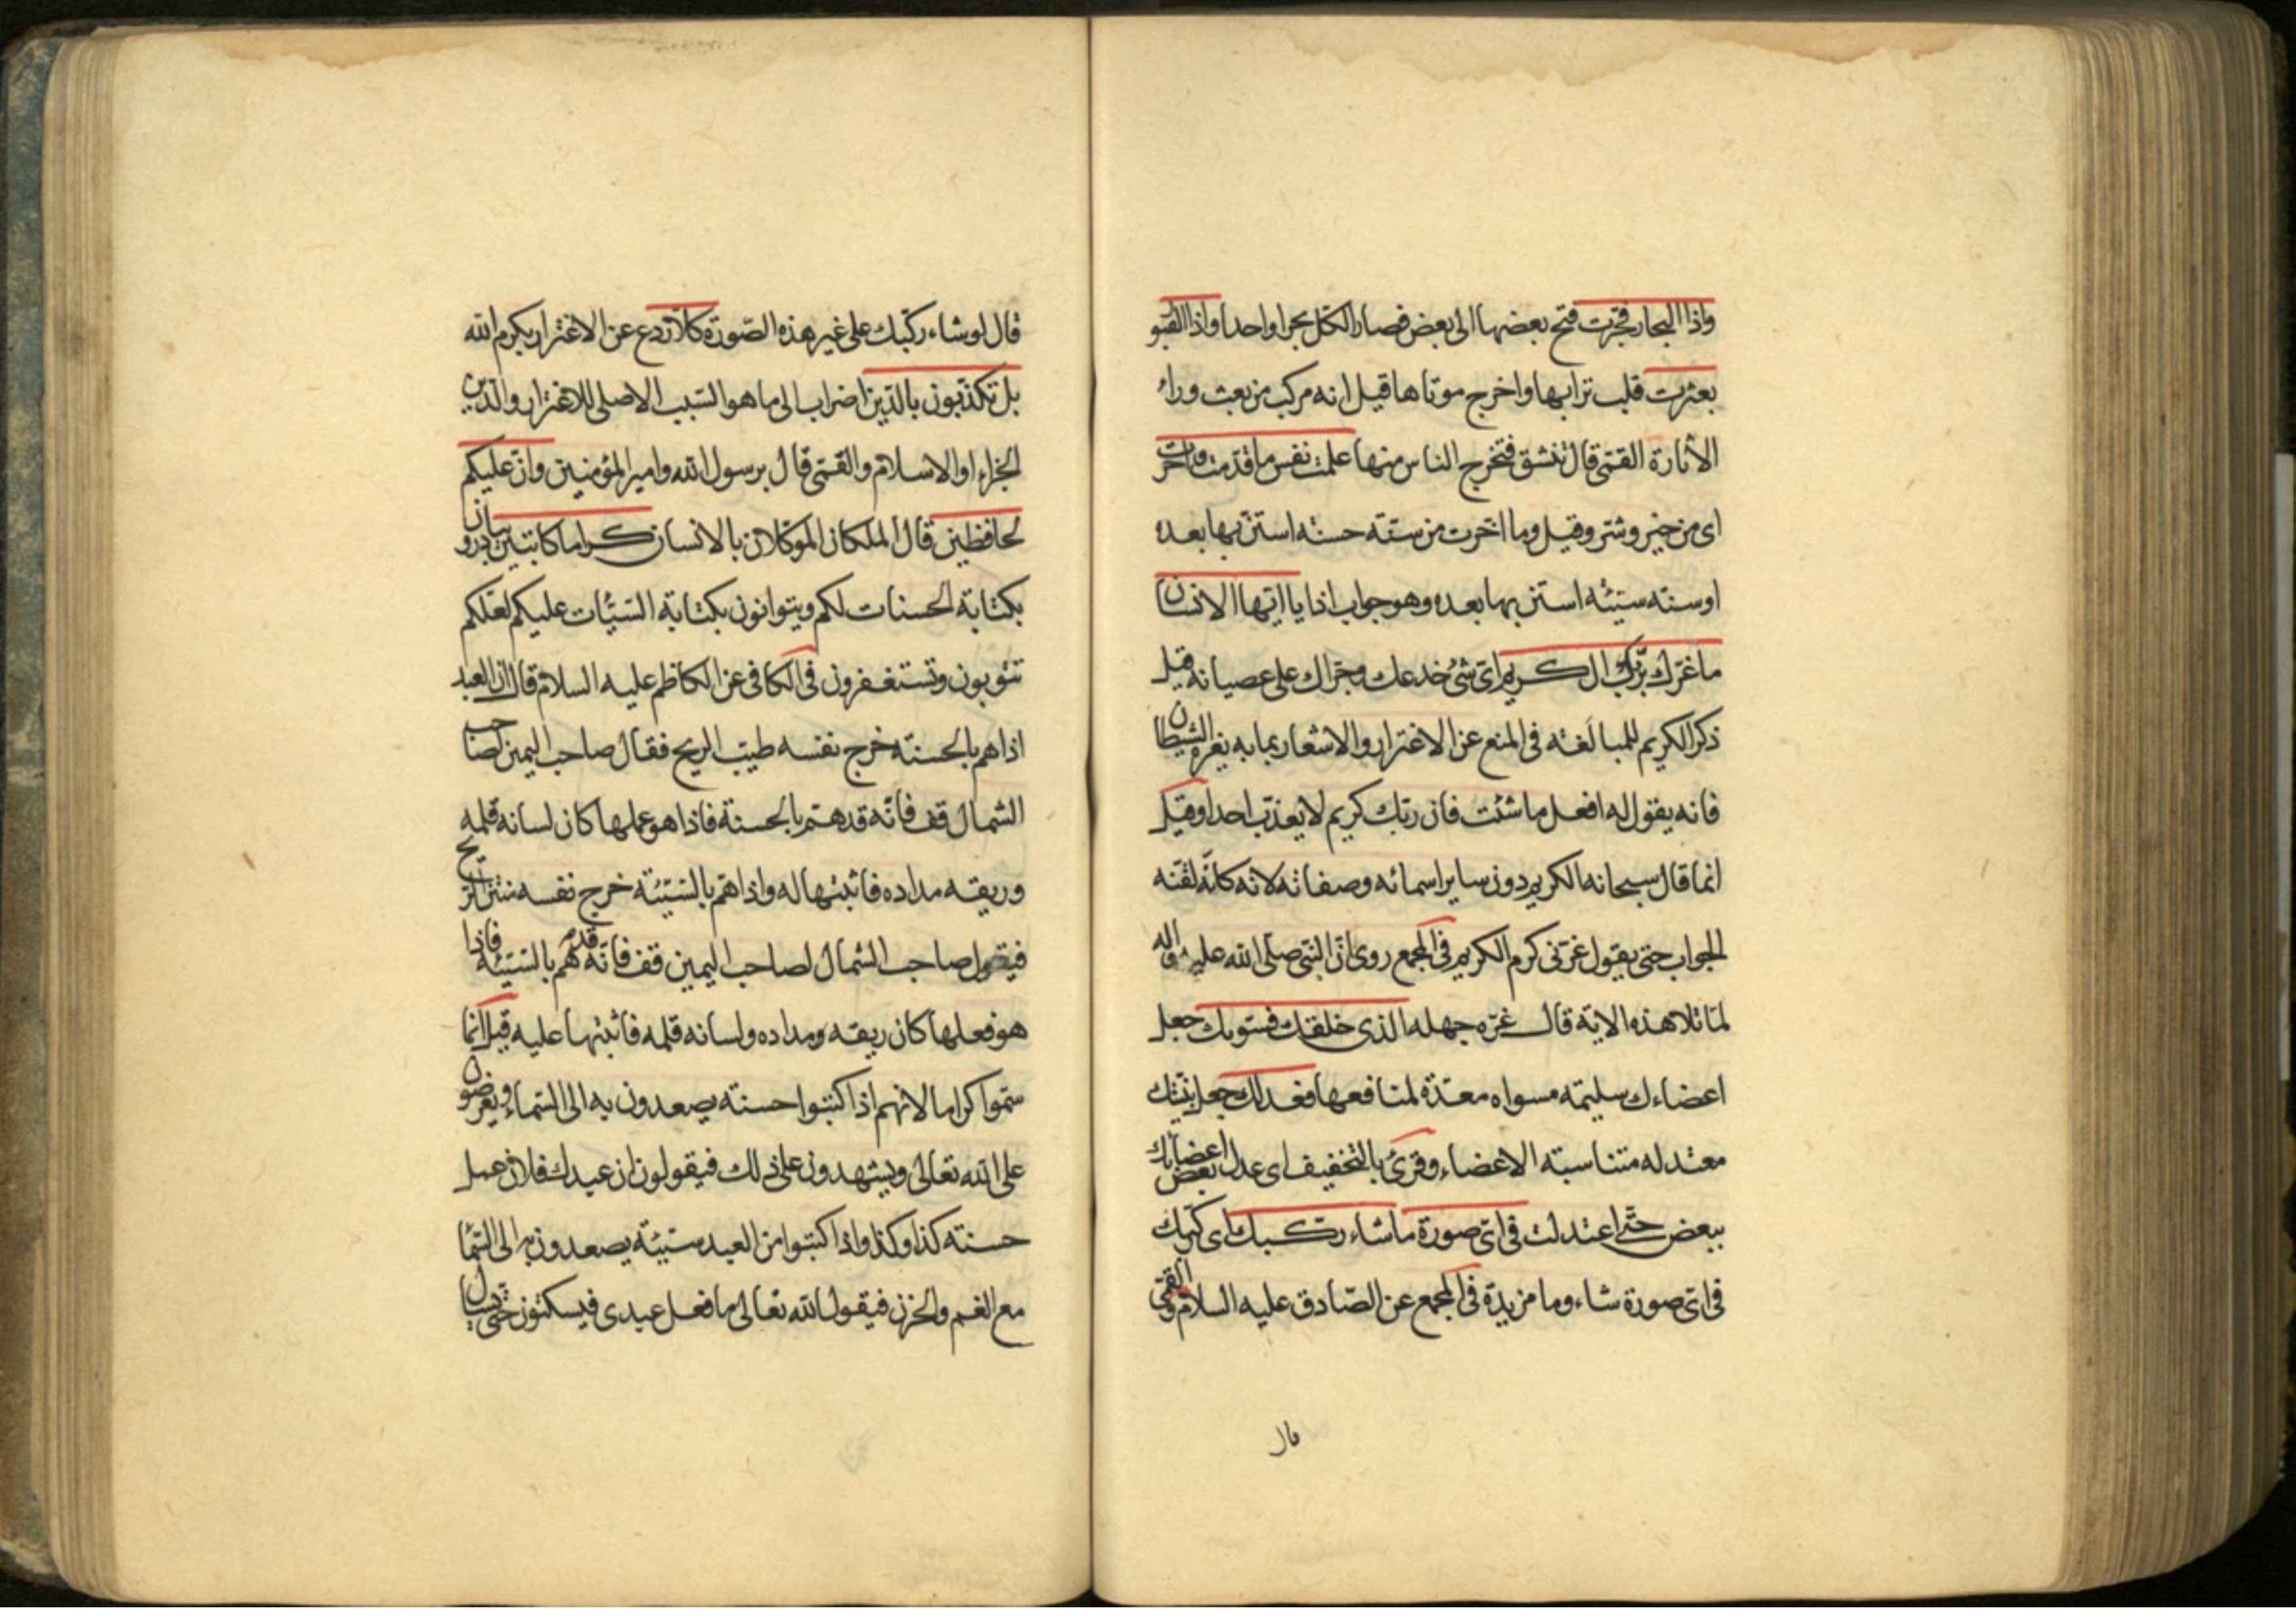 واذا البحار فجرت فتح بعضها الى بعض فصار الكل بحرا واحدا واذا القبور
بعثرت قلب ترابها واخرج موتاها قيل انه مركب من بعث وراء
الاثارة القمّي قال تنشق فتخرج الناس منها علمت نفس ما قدّمت واخّرت
اى من خير وشر وقيل وما اخّرت من سنّة حسنه استن بها بعده
او سنته سيئه استن بها بعده وهو جواب اذا يا ايّها الانسان
ما غرّك بربّك الكريم اىّ شئ خدعك وجرّاك على عصيانه قيل
ذكر الكريم للمبالغه فى المنع عن الاغترار والاشعار بما به يغره الشيطان
فانه يقول له افعل ما شئت فان ربّك كريم لا يعذّب احدا وقيل
انما قال سبحانه الكريم دون ساير اسمائه وصفاته لانه كانّه لقنه
الجواب حتى يقول غرّنى كرم الكريم فى المجمع روى انّ النبّى صلّى الله عليه واله
لمّا تلا هذه الاية قال غرّه جهله الذى خلقك فسوّيك جعل
اعضاءك سليمه مسواه معدّة لمنافعها فعدلك جعل بنيتك
معتدله متناسبته الاعضاء وقرئ بالتخفيف اى عدل اعضائك بعض
ببعض حتّى اعتدلت فى اىّ صورة ما شاء ركّبك اى ركّبك
فى اىّ صورة شاء وما مزيدة فى المجمع عن الصّادق عليه السلام والقمّي
قال
قال لو شاء ركّبك على غير هذه الصّورة كلّا ردع عن الاغترار بكرم الله
بل تكذّبون بالدّين اضراب الى ما هو السّبب الاصلى للاغترار والدّين
الجزاء او الاسلام والقمّى قال برسول الله وامير المؤمنين وانّ عليكم
لحافظين قال الملكان الموكّلان بالانسان كراما كاتبين يبادرون
بكتابة الحسنات لكم ويتوانون بكتابة السّيّئات عليكم لعلّكم
تتوبون وتستغفرون فى الكافى عن الكاظم عليه السلام قال ان العبد
اذا هم بالحسنته خرج نفسه طيّب الريح فقال صاحب اليمين لصاحب
الشمال قف فانّه قد همّ بالحسنة فاذا هو عملها كان لسانه قلمه
وريقه مداده فاثبتها له واذا همّ بالسّيّئة خرج نفسه منتن الريح
فيقول صاحب الشمال لصاحب اليمين قف فانّه قد همّ بالسّيّئة فاذا
هو فعلها كان ريقه ومداده ولسانه قلمه فاثبتها عليه قيل انّما
سمّوا كراما لانهم اذا كتبوا حسنته يصعدون به الى السّماء ويعرضون
على الله تعالى ويشهدون على ذلك فيقولون ان عبدك فلان عمل
حسنته كذا وكذا واذا كتبوا من العبد سيّئة يصعدون به الى السّما
مع الغم والحزن فيقول الله تعالى ما فعل عبدى فيسكتون حتّى يسال